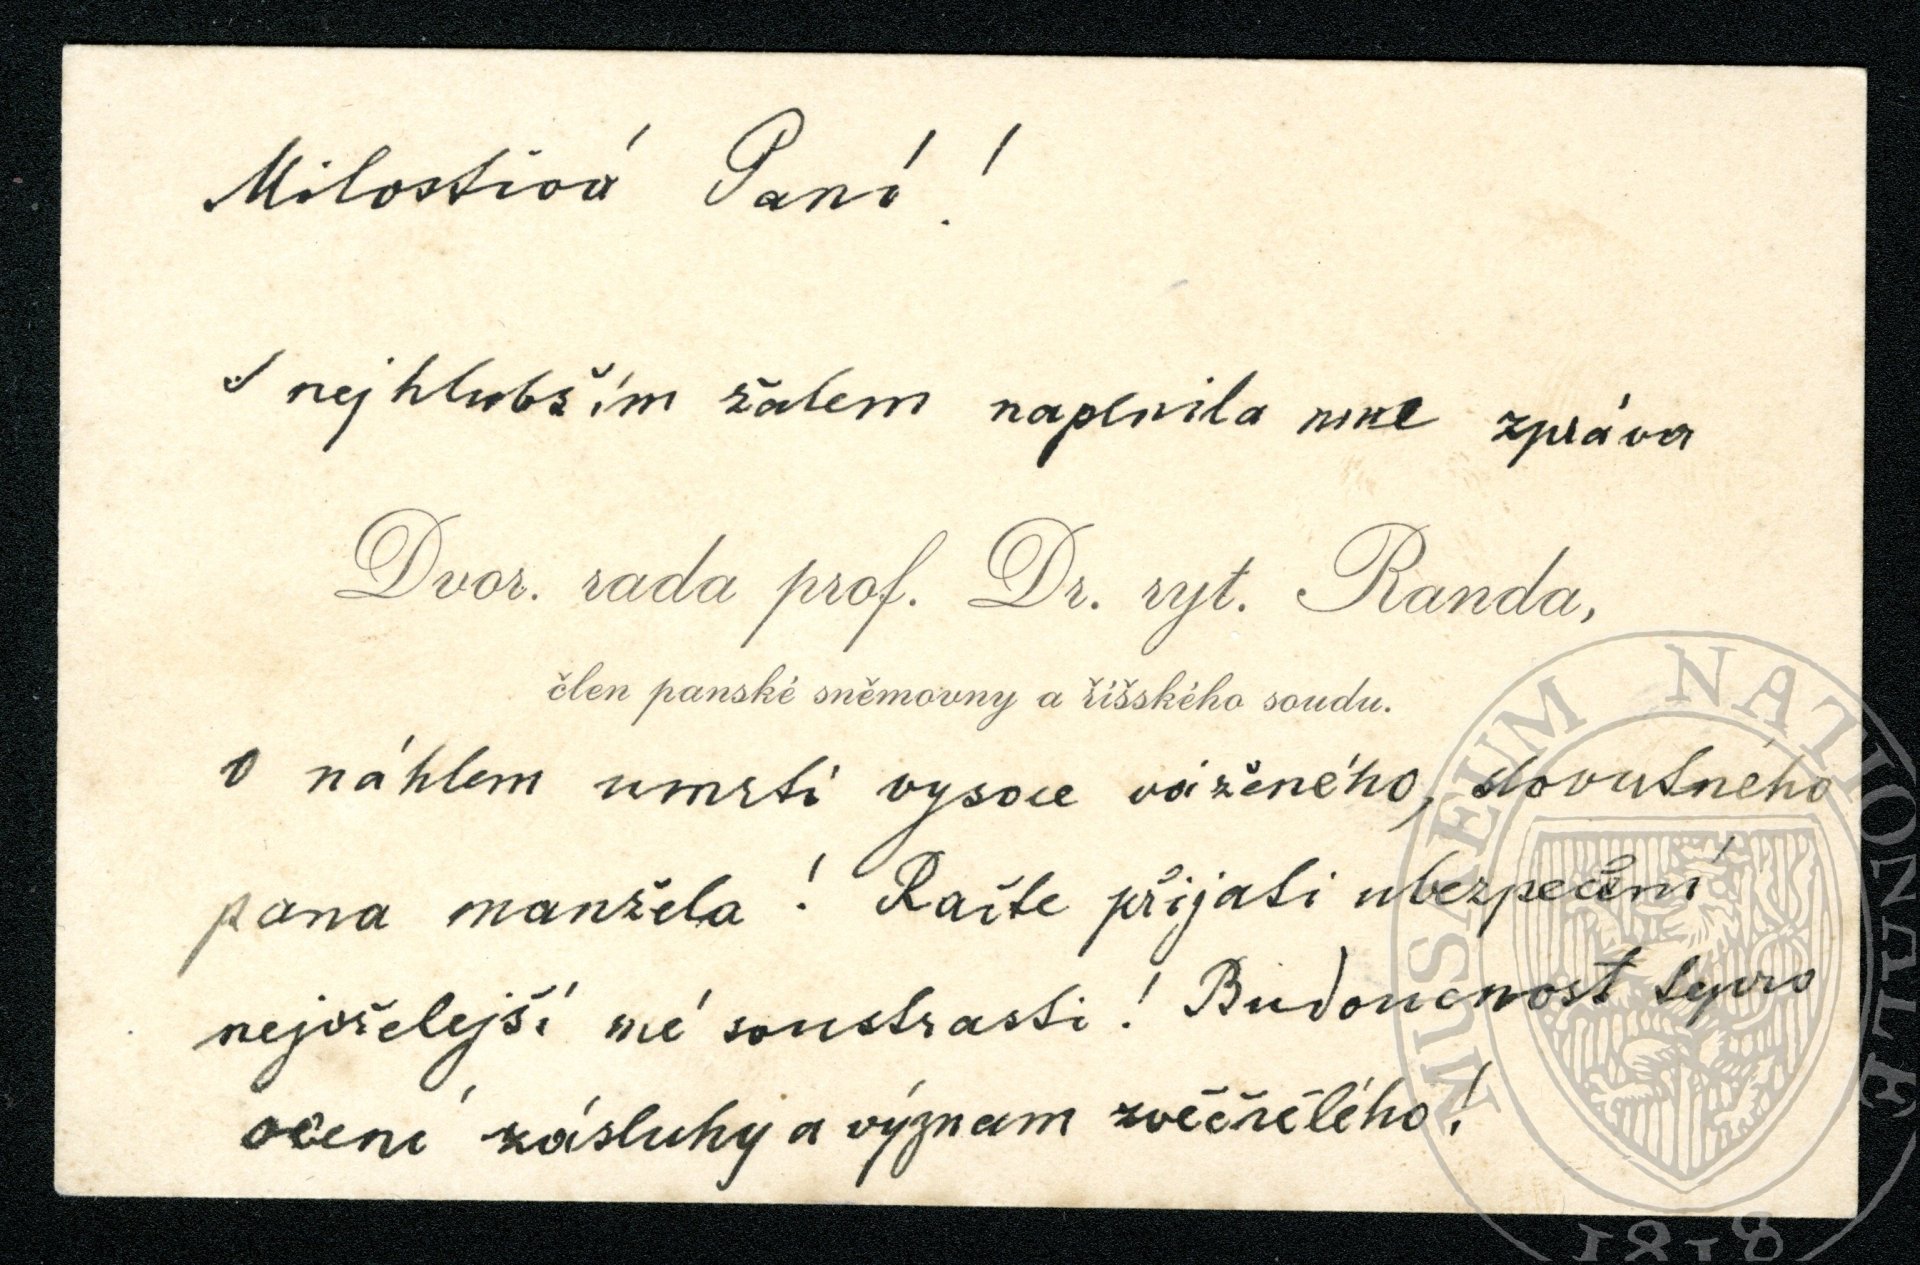 Milostivá Paní!
S nejhlubším žalem naplnila mne zpráva
Dvor. rada prof. Dr. ryt. Randa,
člen panské sněmovny a říšského soudu.
o náhlem umrtí vysoce váženého, slovutného
pana manžela! Račte přijati ubezpečení
nejvřelejší mé soustrasti! Budoucnost teprv
ocení zásluhy a význam zvěčnělého!
MUSAEUM NATIONALE
1818